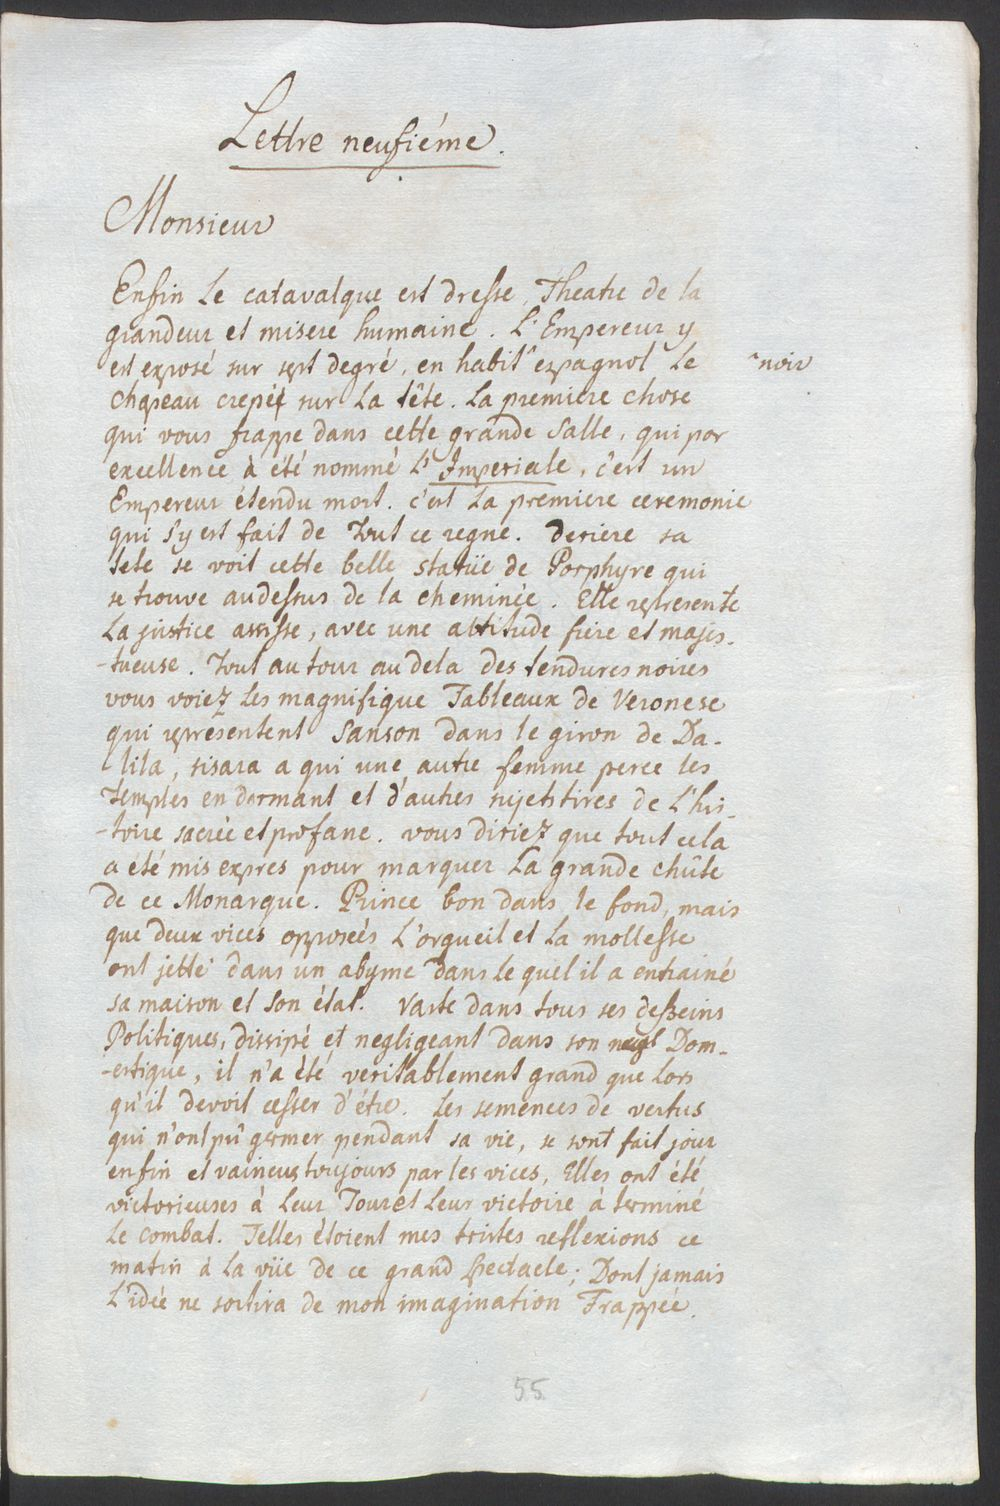 Lettre neufiéme.
Monsieur
Enfin Le catavalque est dresse, Theatre de la
grandeur et misere humaine. L'Empereur y
est exposé sur sept degré, en habit ^ espagnol Le
^ noir
chapeau crepé sur La tête. La premiere chose
qui vous frappe dans cette grande Salle, qui por
excellence à été nommé L'Imperiale, c'est un
Empereur étendu mort. c'est La premiere ceremonie
qui s'y est fait de Tout ce regne. Deriere sa
tete se voit cette belle statüe de Porphyre qui
se trouve audessus de la cheminée. Elle represente
La justice assisse, avec une attitude fiere et majes-
-tueuse. Tout au tour au dela des tendures noires
vous voiez Les magnifique Tableaux de Veronese
qui representent Sanson dans le giron de Da-
lila, sisara a qui une autre femme perce les
Temples en dormant et d'autres sujets tires de L'his-
-toire sacrée et profane. vous diriez que tout cela
a été mis expres pour marquer La grande chûte
de ce Monarque. Prince bon dans le fond, mais
que deux vices opposeés L'orgueil et La mollesse
ont jetté dans un abyme dans le quel il a entrainé
sa maison et son état. Vaste dans tous ses desseins
Politiques, dissipé et negligeant dans son Dom-
-estique, il n'a été veritablement grand que Lors
qu'il devoit cesser d'étre. Les semences de vertus
qui n'ont pû germer pendant sa vie, se sont fait jour
enfin et vaincus toujours par les vices, Elles ont été
victorieuses à Leur Tour et Leur victoire à terminé
Le combat. Telles étoient mes tristes reflexions ce
matin à La vüe de ce grand spectacle; Dont jamais
L'idée ne sortira de mon imagination Frappée.
55